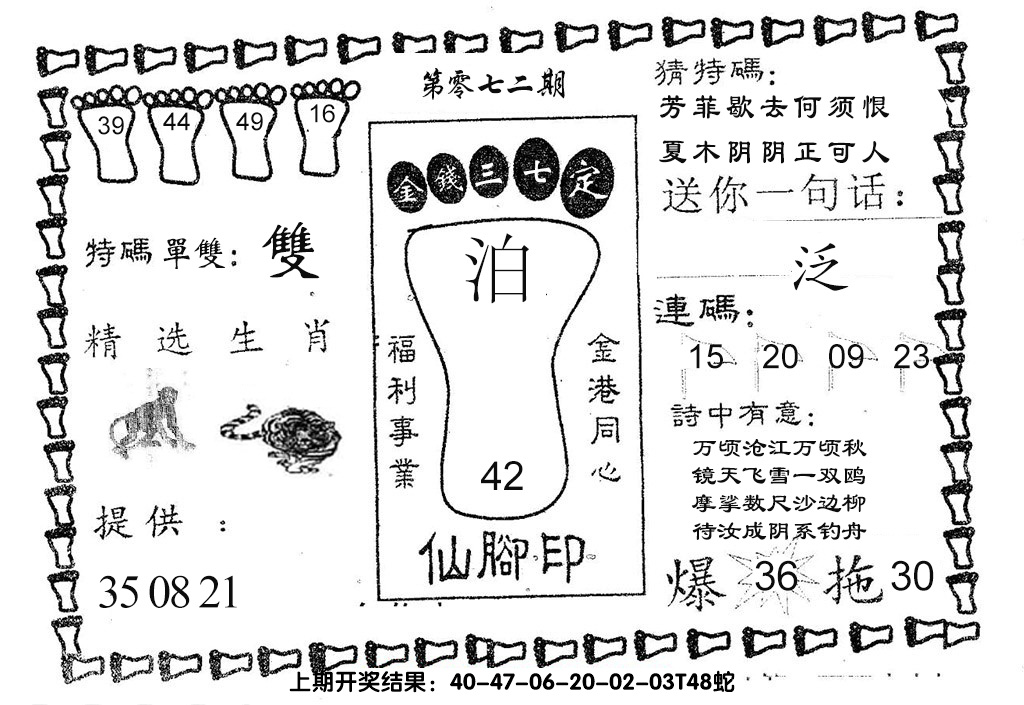 第零七二期
39 44 49 16
特碼單雙：雙
精选生肖
提供：
35 08 21
金錢三七定
泊
福利事業
金港同心
42
仙腳印
猜特碼：
芳菲歇去何须恨
夏木阴阴正可人
送你一句话：
泛
連碼：
15 20 09 23
詩中有意：
万顷沧江万顷秋
镜天飞雪一双鸥
摩挲数尺沙边柳
待汝成阴系钓舟
爆 36 拖 30
上期开奖结果：40-47-06-20-02-03T48蛇